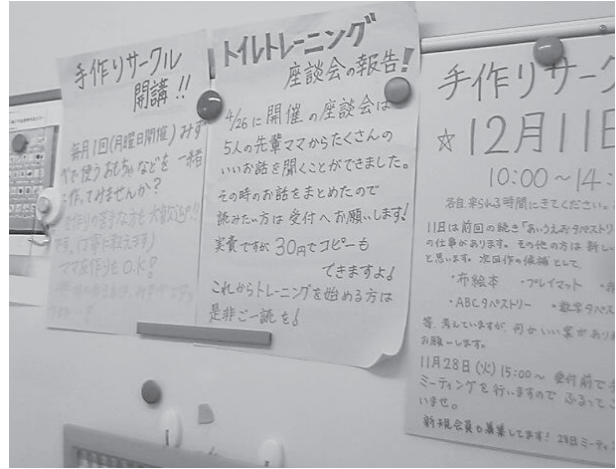 手作りサークル
開講!!
毎月1回(月曜日開催)みず
べで使うおもちゃなどを一緒
に作ってみませんか?
大歓迎!!
ママ友作りもO.K!
トイレトレーニング
座談会の報告!
4/26に開催の座談会は
5人の先輩ママからたくさんの
いいお話を聞くことができました。
その時のお話をまとめたので
読みたい方は受付へお願いします!
実費ですが30円でコピーも
できますよ♪
これからトレーニングを始める方は
是非ご一読を♪
手作りサーク
☆12月11日
10:00~14:
各自来られる時間にきてください。
11日は前回の続き「あいうえおタペストリー
の仕事があります。その他の方は新し
と思います。次回作の候補として
・布絵本 ・プレイマット
・ABCタペストリー ・数字タペス
等、考えていますが、何かいい案があり
お願いします。
11月28日(火)15:00~ 受付前で
ミーティングを行いますので ふるってご
いませ。
新規会員も募集してます! 28日ミーティ